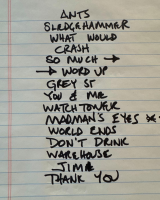 ANTS
SLEDGEHAMMER
WHAT WOULD
CRASH
SO MUCH →
→ WORD UP
GREY ST
YOU & ME
WATCHTOWER
MADMAN'S EYES *
WORLD ENDS
DON'T DRINK
WAREHOUSE
JIMI
THANK YOU